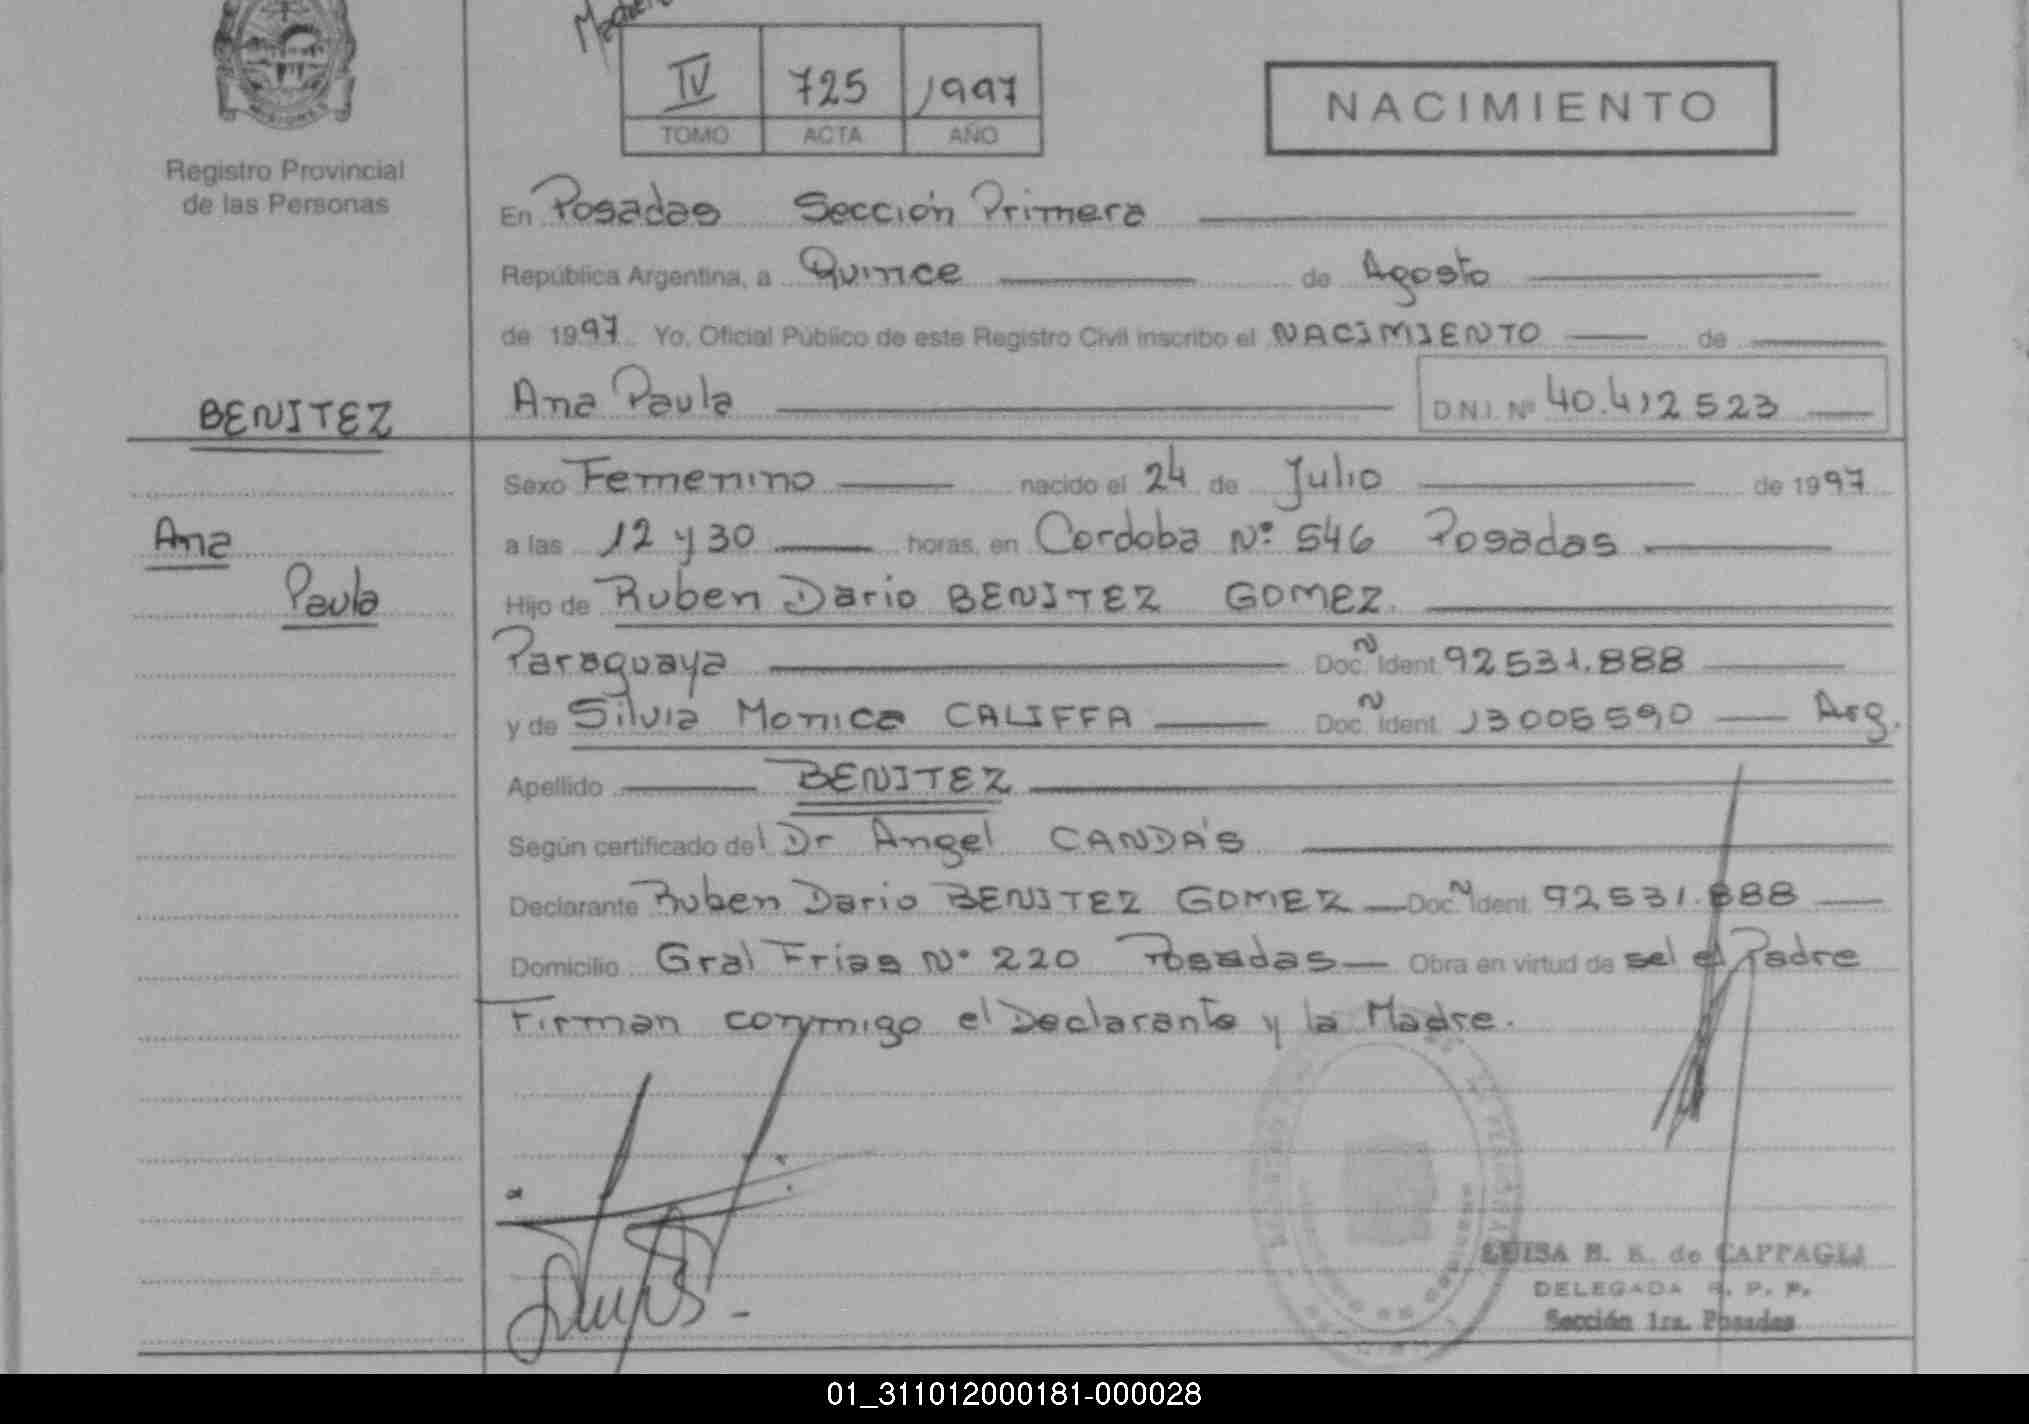 IV 725 1997
TOMO ACTA AÑO
NACIMIENTO
Registro Provincial
de las Personas
En Posadas Sección Primera
República Argentina, a Quince de Agosto
de 1997 Yo, Oficial Público de este Registro Civil inscribo el NACIMIENTO de
Ana Paula D.N.I. Nº 40.412523
BENITEZ
Ana
Paula
Sexo Femenino nacido el 24 de Julio de 1997
a las 12 y 30 horas, en Cordoba Nº 546 Posadas
Hijo de Ruben Dario BENITEZ GOMEZ.
Paraguaya Doc. N Ident. 92531.888
y de Silvia Monica CALIFFA Doc. N Ident. 13005590 Arg.
Apellido BENITEZ
Según certificado del Dr Angel CANDA'S
Declarante Ruben Dario BENITEZ GOMEZ Doc. N Ident. 92531.888
Domicilio Gral Frias Nº 220 Posadas Obra en virtud de sel el Padre
Firman conmigo el Declarante y la Madre.
LUISA B. K. de CAPPAGLI
DELEGADA R. P. P.
Sección 1ra. Posadas
01_311012000181-000028